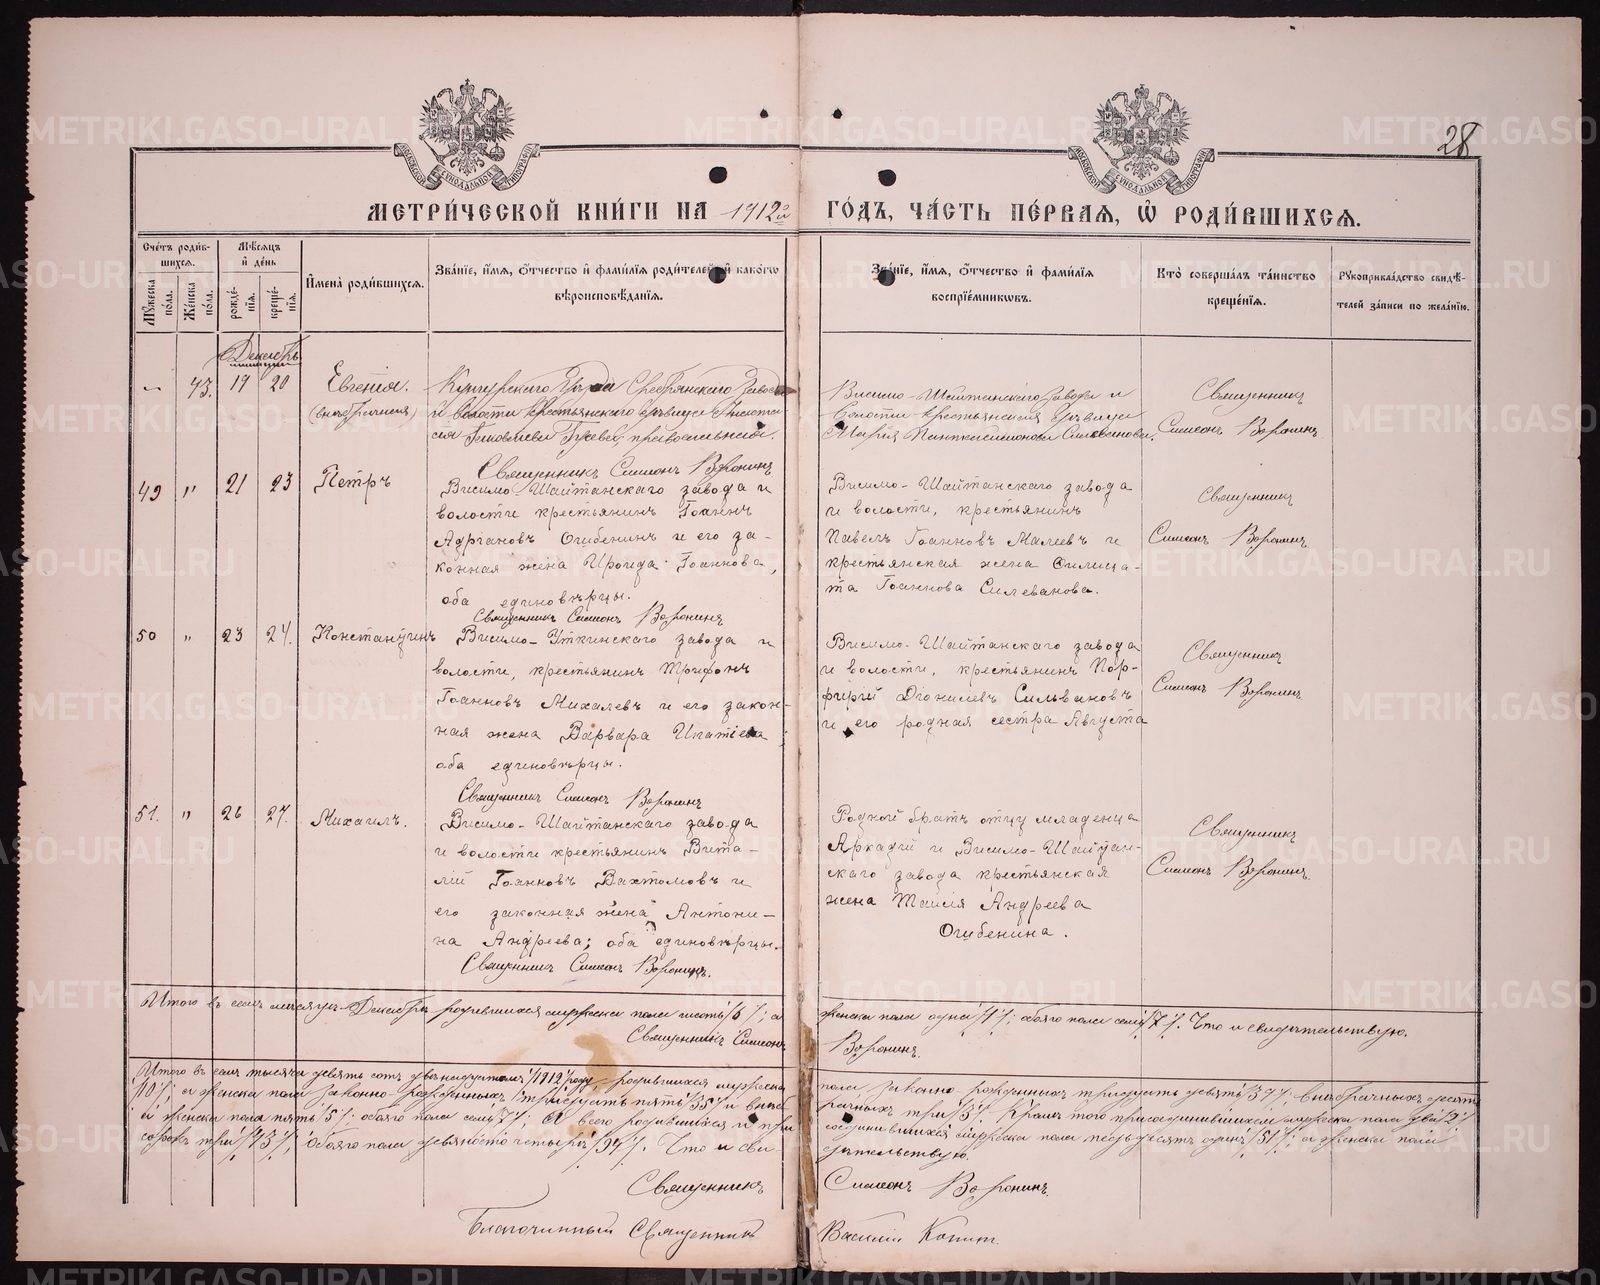 28
МЕТРИ́ЧЕСКОЙ КНИ́ГИ НА 1912й ГО́ДЪ, ЧА́СТЬ ПЕ́РВАЯ, Ѡ҆ РОДИ́ВШИХСЯ.
Сче́тъ роди́вшихся.
Мꙋ́жеска по́ла.
Же́нска по́ла.
Мѣ́сяцъ и҆ де́нь
рожде́нїя.
креще́нїя.
И҆мена̀ роди́вшихся.
Зва́нїе, и҆́мя, ѻ҆́тчество и҆ фами́лїя роди́телей, и҆ како́гѡ
вѣроисповѣ́данїя.
Зва́нїе, и҆́мя, ѻ҆́тчество и҆ фами́лїя
воспрїе́мникѡвъ.
Кто̀ соверша́лъ та́инство
креще́нїя.
Рꙋкоприкла́дство свидѣ́-
телей за́писи по жела́нїю.
Декабрь
43. 19 20 Евгенія.
(внѣбрачная)
Кунгурскаго уѣзда Сребрянскаго завода
и волости крестьянская дѣвица Анаста
сія Яковлева Гусева, православная.
Священникъ Симеонъ Воронинъ
Висимо-Шайтанскаго завода и
волости крестьянская дѣвица
Марія Силованова.
Священникъ
Симеонъ Воронинъ
49 " 21 23 Петръ
Висимо-Шайтанскаго завода и
волости крестьянинъ Іоаннъ
Адріановъ Огибенинъ и его за-
конная жена Ироида Іоаннова,
оба единовѣрцы.
Священникъ Симеонъ Воронинъ
Висимо-Шайтанскаго завода
и волости, крестьянинъ
Павелъ Іоанновъ Малеевъ и
крестьянская жена Филица-
та Іоаннова Силеванова.
Священникъ
Симеонъ Воронинъ
50 " 23 24. Константинъ
Висимо-Уткинскаго завода и
волости, крестьянинъ Трифонъ
Іоанновъ Михалевъ и его закон-
ная жена Варвара Игнатіева;
оба единовѣрцы.
Священникъ Симеонъ Воронинъ
Висимо-Шайтанскаго завода
и волости, крестьянинъ Пор-
фирій Діонисіевъ Сильвановъ
и его родная сестра Августа
Священникъ
Симеонъ Воронинъ
51. " 26 27. Михаилъ.
Висимо-Шайтанскаго завода
и волости крестьянинъ Вита-
лій Іоанновъ Вахтомовъ и
его законная жена Антони-
на Андреева; оба единовѣрцы.
Священникъ Симеонъ Воронинъ.
Родной братъ отцу младенца
Аркадій и Висимо-Шайтан-
скаго завода крестьянская
жена Таисія Андреева
Огибенина.
Священникъ
Симеонъ Воронинъ.
Итого въ семъ мѣсяцѣ Декабрѣ родившихся мужеска пола шесть /6/; а
женска пола одна /1/; обоего пола семь /7/. Что и свидѣтельствую.
Священникъ Симеонъ
Воронинъ.
Итого въ семъ тысяча девять сотъ двѣнадцатомъ /1912/ году родившихся мужеска
пола законно рожденныхъ тридцать девять /39/, внѣбрачныхъ десять
/10/; а женска пола законно рожденныхъ тридцать пять /35/ и внѣб
рачныхъ три /3/. Кромѣ того присоединившихся мужеска пола два /2/
и женска пола пять /5/; обоего пола семь /7/; А всего родившихся и при
соединившихся мужеска пола пятьдесятъ одинъ /51/; а женска пола
сорокъ три /43/, обоего пола девяносто четыре /94/. Что и сви
дѣтельствую.
Священникъ Симеонъ Воронинъ.
Благочинный Священникъ Василій